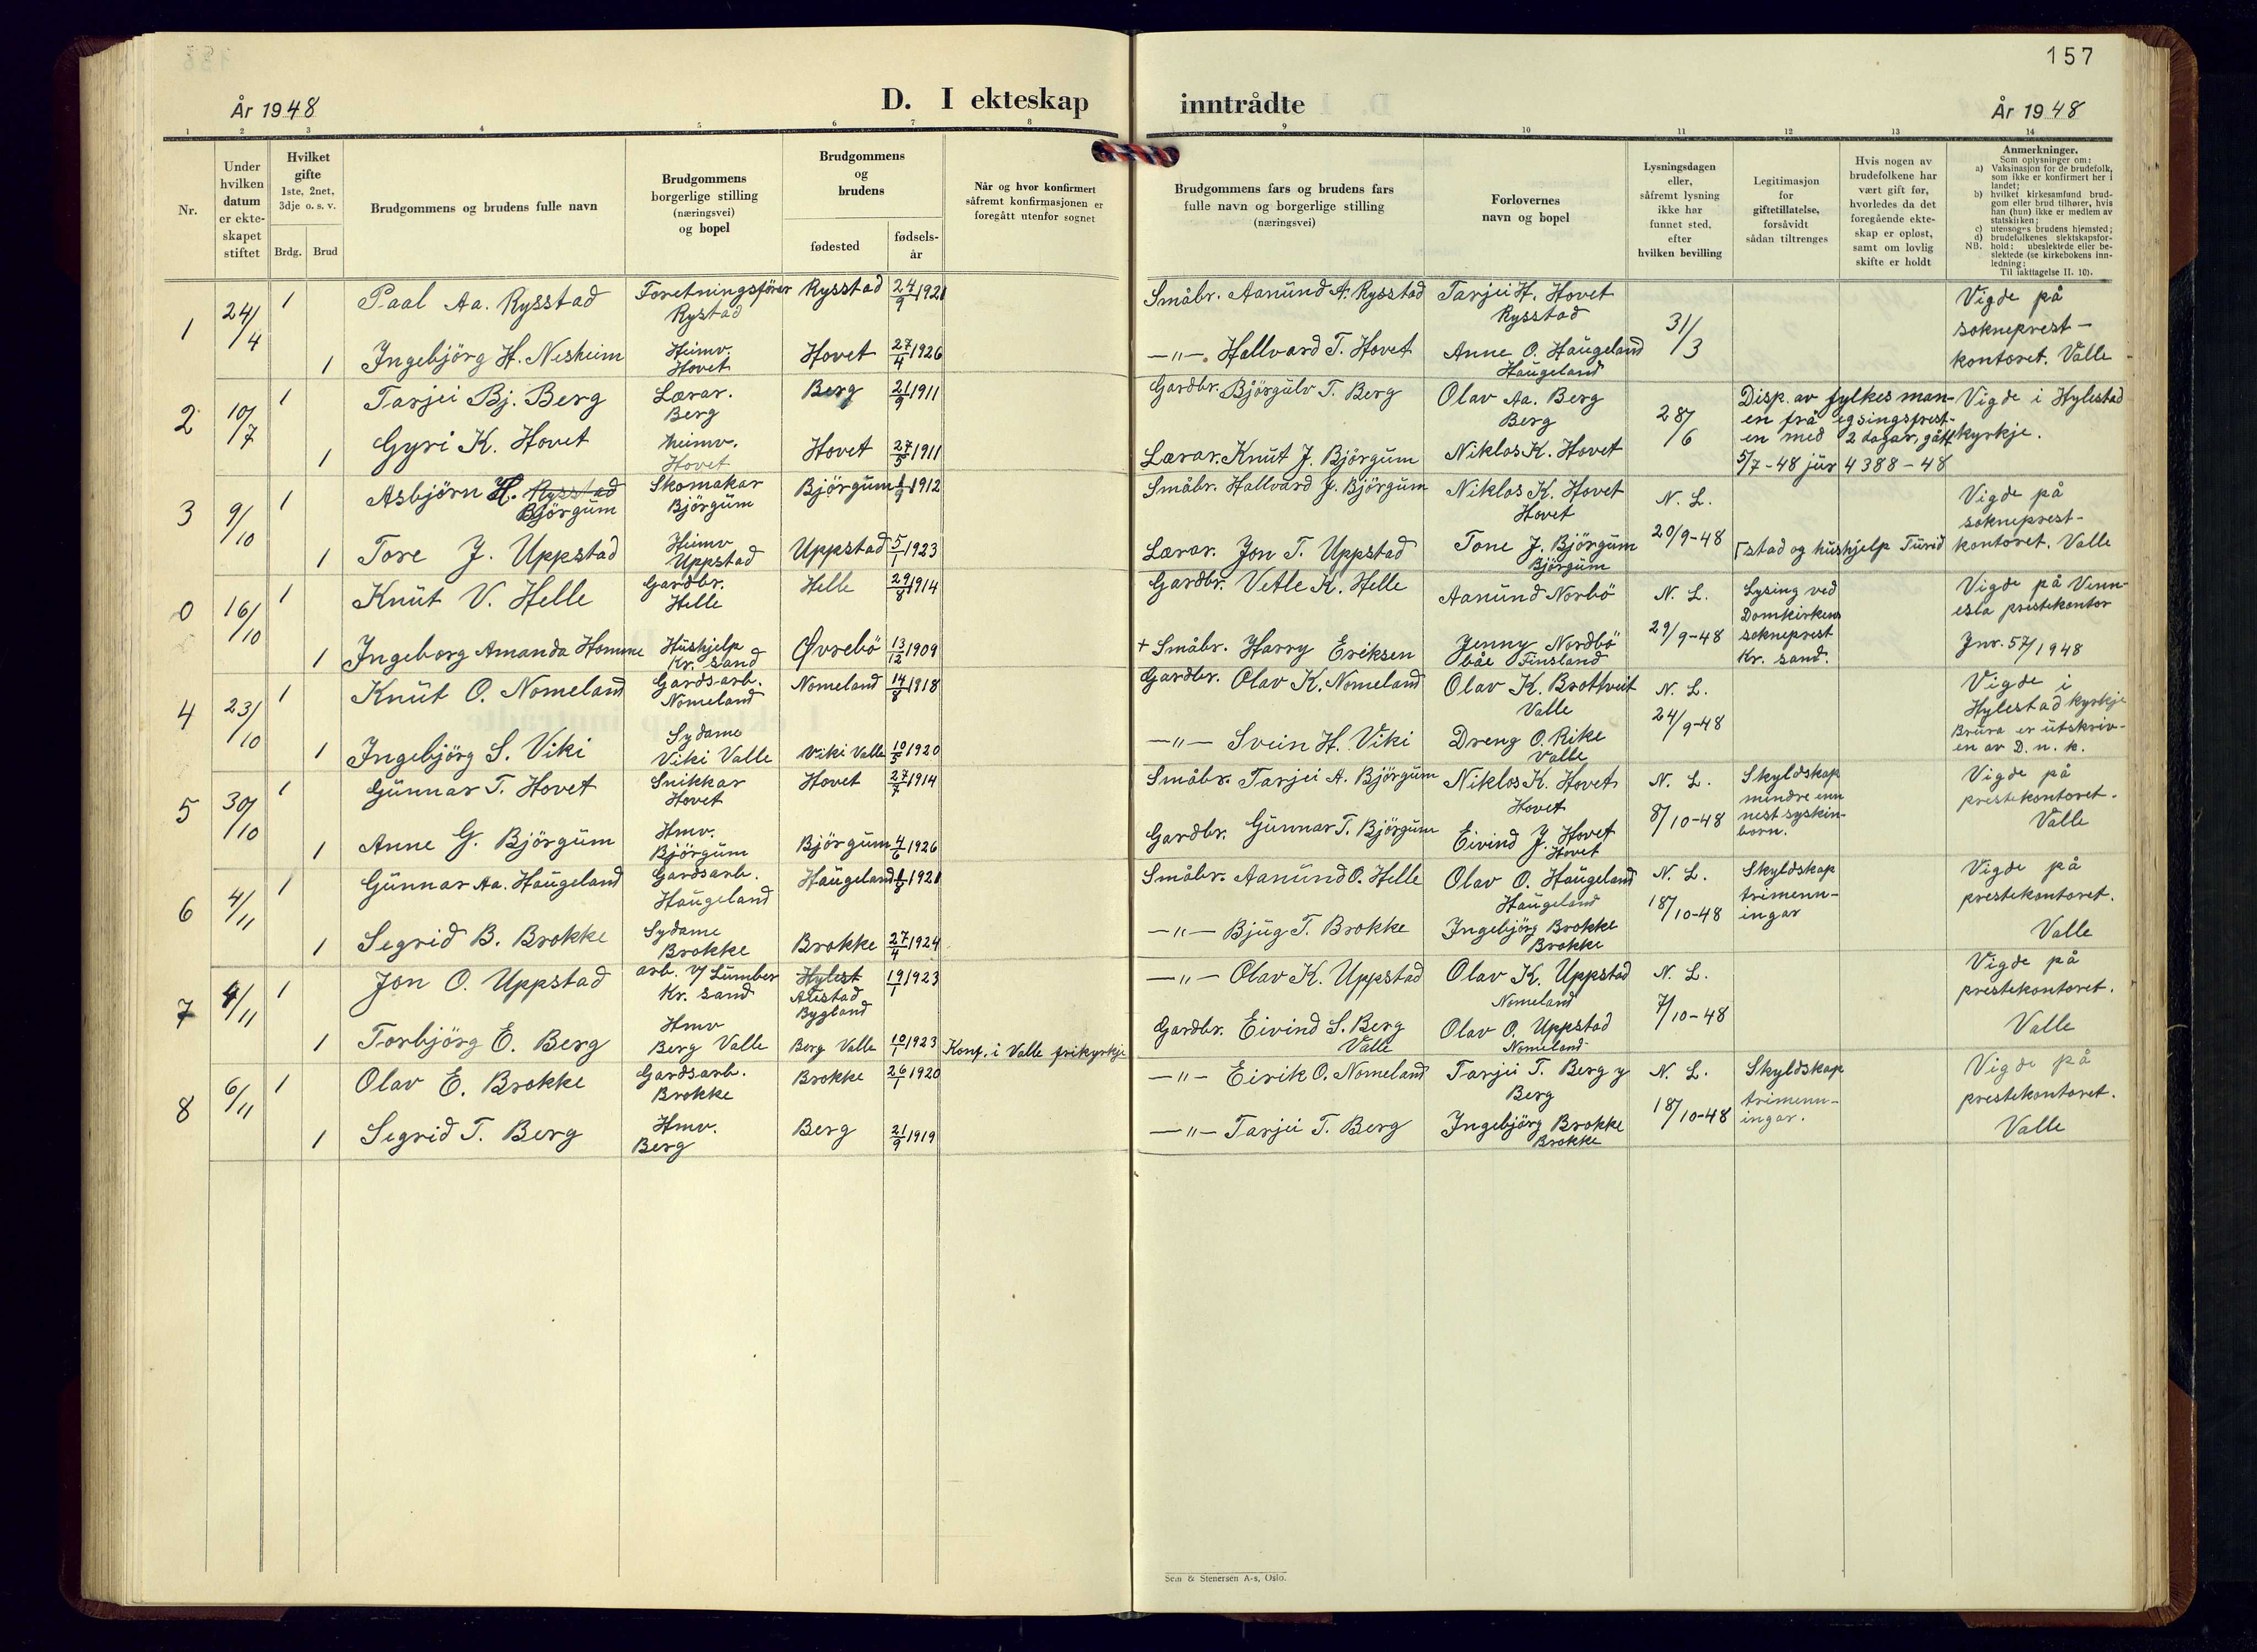 157
År 1948
D. I ekteskap
inntrådte
År 1948
1 2 3 4 5 6 7 8 9 10 11 12 13 14
Nr.
Under
hvilken
datum
er ekte-
skapet
stiftet
Hvilket
gifte
1ste, 2net,
3dje o. s. v.
Brdg. Brud
Brudgommens og brudens fulle navn
Brudgommens
borgerlige stilling
(næringsvei)
og bopel
Brudgommens
og
brudens
fødested
fødsels-
år
Når og hvor konfirmert
såfremt konfirmasjonen er
foregått utenfor sognet
Brudgommens fars og brudens fars
fulle navn og borgerlige stilling
(næringsvei)
Forlovernes
navn og bopel
Lysningsdagen
eller,
såfremt lysning
ikke har
funnet sted,
efter
hvilken bevilling
Legitimasjon
for
giftetillatelse,
forsåvidt
sådan tiltrenges
Hvis nogen av
brudefolkene har
vært gift før,
hvorledes da det
foregående ekte-
skap er opløst,
samt om lovlig
skifte er holdt
Anmerkninger.
Som oplysninger om:
a) Vaksinasjon for de brudefolk,
som ikke er konfirmert her i
landet;
b) hvilket kirkesamfund brud-
gom eller brud tilhører, hvis
han (hun) ikke er medlem av
statskirken;
c) utensogns brudens hjemsted;
d) brudefolkenes slektskapsfor-
NB. hold: ubeslektede eller be-
slektede (se kirkebokens inn-
ledning:
Til iakttagelse II. 10).
1 24/4 1 Paal Aa. Rysstad
Foretningsfører
Rystad
Rysstad 24/9 1921
Småbr. Aanund A. Rysstad
Tarjei H. Hovet
Rysstad
31/3
Vigde på
sokneprest-
kontoret. Valle
1 Ingebjörg H. Nesheim
Heimv.
Hovet
Hovet 27/4 1926
—"— Hallvard T. Hovet
Anne O. Haugeland
Haugeland
2 10/7 1 Tarjei Bj. Berg
Lærar.
Berg
Berg 21/9 1911
Gardbr. Bjørgulv T. Berg
Olav Aa. Berg
Berg
28/6
Disp. av fylkesman-
en frå lysingsfrest-
en med 2 dagar, gått
5/7-48 jur 4388-48
Vigde i Hylestad
kyrkje.
1 Gyri K. Hovet
Heimv.
Hovet
Hovet 27/5 1911
Lærar. Knut J. Björgum
Niklos K. Hovet
3 9/10 1 Asbjörn H. Rysstad
Björgum
Skomakar
Björgum
Björgum 1912
Småbr. Hallvard J. Björgum
Niklos K. Hovet
Hovet
N. L.
20/9-48
Vigde på
sokneprest-
kontoret. Valle
1 Tore J. Uppstad
Heimv
Uppstad
Uppstad 5/1 1923
Lærar. Jon T. Uppstad
Tone J. Björgum
Björgum
stad og hushjelp Turid
0 16/10 1 Knut V. Helle
Gardbr.
Helle
Helle 29/8 1914
Gardbr. Vetle K. Helle
Aanund Norbö
N. L.
29/9-48
Lysing ved
Domkirkens
sokneprest
Kr. sand.
Vigde på Venn-
esla prestekontor
Jnr. 57/1948
1 Ingeborg Amanda Homme
Hushjelp
Kr. sand
Øvrebö 13/12 1909
+ Småbr. Harry Eriksen
Jenny Nordbö
båe Finsland
4 23/10 1 Knut O. Nomeland
Gardsarb.
Nomeland
Nomeland 14/8 1918
Gardbr. Olav K. Nomeland
Olav K. Brottveit
Valle
N. L.
24/9-48
Vigde i
Hylestad kyrkje
Brura er utskriv-
en av D. n. k.
1 Ingebjörg S. Viki
Sydame
Viki Valle
Viki Valle 10/5 1920
—"— Svein H. Viki
Dreng O. Rike
Valle
5 30/10 1 Gunnar T. Hovet
Snikkar
Hovet
Hovet 27/7 1914
Småbr. Tarjei A. Björgum
Niklos K. Hovet
Hovet
N. L.
8/10-48
Skyldskap
mindre enn
nest syskin-
born.
Vigde på
prestekontoret.
Valle
1 Anne G. Björgum
Hmv.
Björgum
Björgum 4/6 1926
Gardbr. Gunnar T. Björgum
Eivind J. Hovet
Hovet
6 4/11 1 Gunnar Aa. Haugeland
Gardsarb.
Haugeland
Haugeland 1921
Småbr. Aanund O. Helle
Olav O. Haugeland
Haugeland
N. L.
18/10-48
Skyldskap
trimenn-
ingar
Vigde på
prestekontoret.
Valle
1 Segrid B. Brokke
Sydame
Brokke
Brokke 27/4 1924
—"— Bjug T. Brokke
Ingebjörg Brokke
Brokke
7 4/11 1 Jon O. Uppstad
arb. v/ Lumber
Kr. sand
Hylest
Bygland
19/1 1923
—"— Olav K. Uppstad
Olav K. Uppstad
Nomeland
N. L.
7/10-48
Vigde på
prestekontoret.
Valle
1 Torbjörg E. Berg
Hmv
Berg Valle
Berg Valle 10/1 1923
Konf. i Valle frikyrkje
Gardbr. Eivind S. Berg
Valle
Olav O. Uppstad
Nomeland
8 6/11 1 Olav E. Brokke
Gardsarb.
Brokke
Brokke 26/1 1920
—"— Eirik O. Nomeland
Tarjei T. Berg y
Berg
N. L.
18/10-48
Skyldskap
trimenn-
ingar.
Vigde på
prestekontoret.
Valle
1 Segrid T. Berg
Hmv.
Berg
Berg 21/9 1919
—"— Tarjei T. Berg
Ingebjörg Brokke
Brokke
Sem & Stenersen A-s, Oslo.